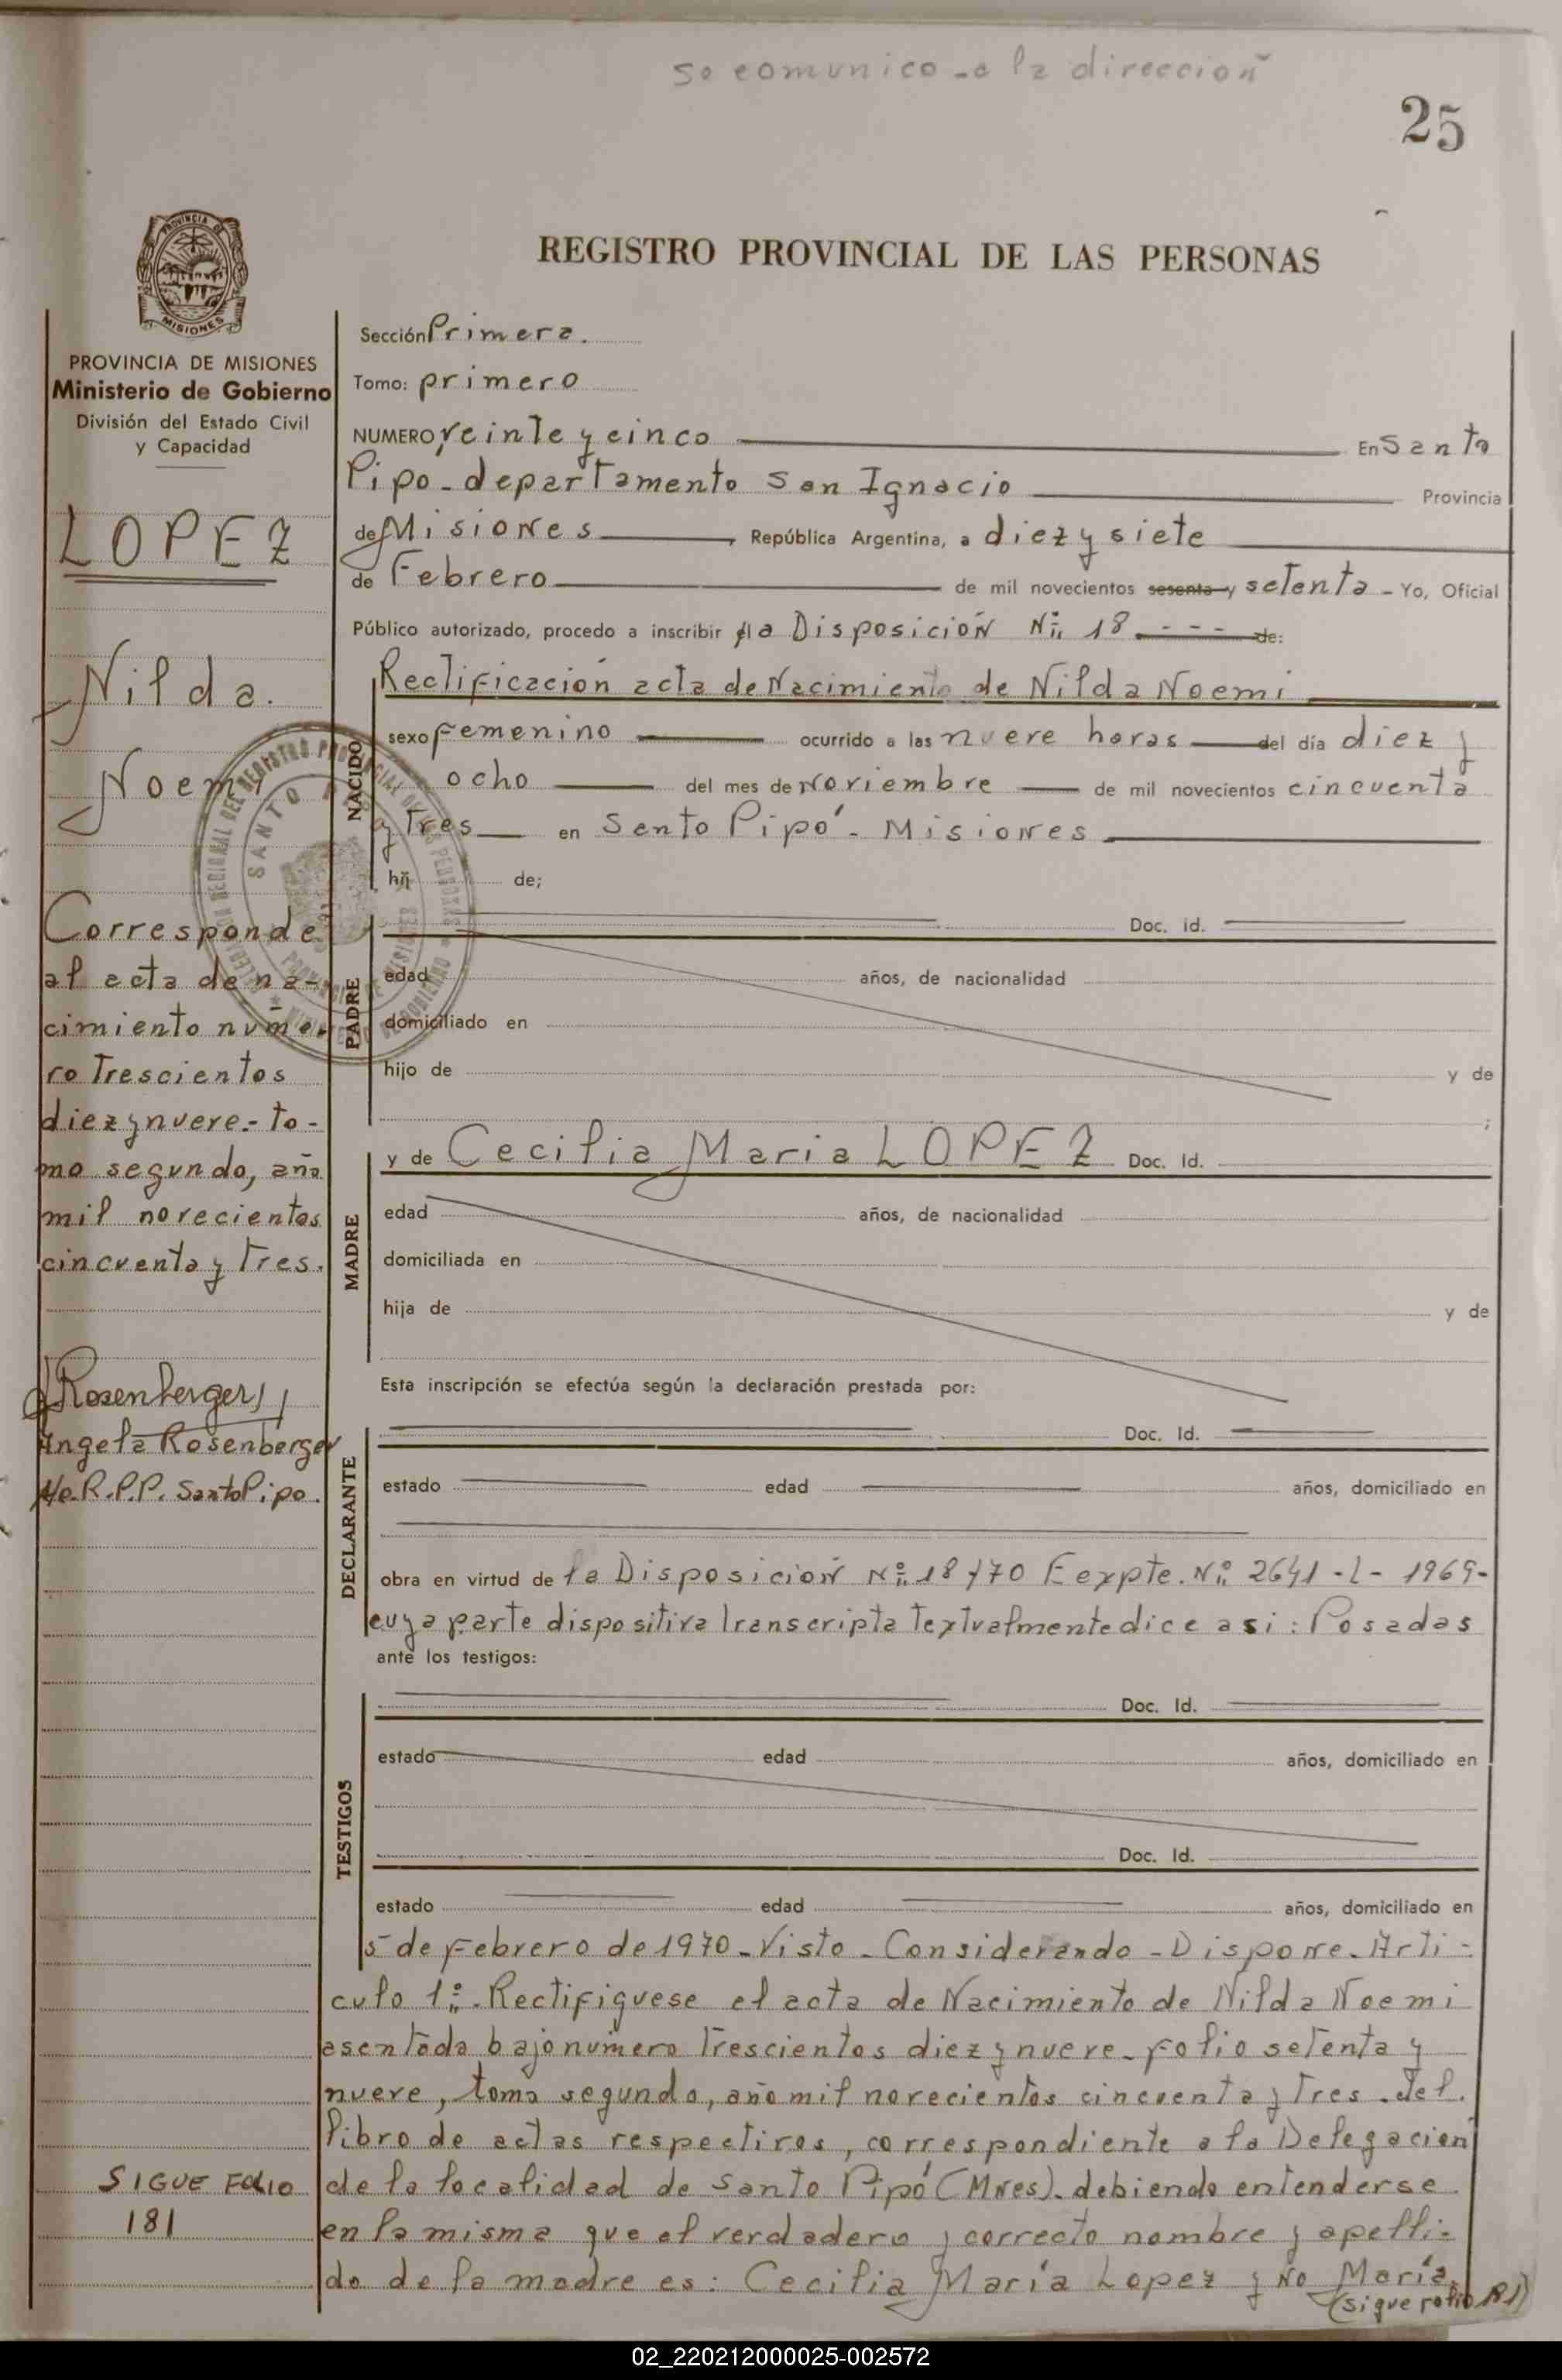 se comunico a la direccion
25
REGISTRO PROVINCIAL DE LAS PERSONAS
PROVINCIA DE MISIONES
PROVINCIA DE MISIONES
Ministerio de Gobierno
División del Estado Civil
y Capacidad
LOPEZ
Nilda.
Noemi
Corresponde
al acta de na-
cimiento núme-
ro Trescientos
diez y nueve.- to-
mo segundo, año
mil novecientos
cincuenta y Tres.
Rosenberger
Angela Rosenberger
R.P.P. Santo Pipo.
SIGUE FOLIO
181
Sección Primera.
Tomo: primero
NUMERO Veinte y cinco En Santo
Pipó - departamento San Ignacio Provincia
de Misiones, República Argentina, a diez y siete
de Febrero de mil novecientos sesenta y setenta - Yo, Oficial
Público autorizado, procedo a inscribir el la Disposición Nº 18 - - - de:
NACIDO
Rectificación acta de Nacimiento de Nilda Noemi
sexo Femenino ocurrido a las nueve horas del día diez y
ocho del mes de Noviembre de mil novecientos cincuenta
y Tres en Santo Pipó - Misiones
hij de;
PADRE
Doc. id.
edad años, de nacionalidad
domiciliado en
hijo de y de
;
MADRE
y de Cecilia Maria LOPEZ Doc. Id.
edad años, de nacionalidad
domiciliada en
hija de y de
Esta inscripción se efectúa según la declaración prestada por:
DECLARANTE
Doc. Id.
estado edad años, domiciliado en
obra en virtud de la Disposición Nº 18/70 Eexpte. Nº 2641 - L - 1969-
cuya parte dispositiva Transcripta Textualmente dice asi: Posadas
ante los testigos:
TESTIGOS
Doc. Id.
estado edad años, domiciliado en
Doc. Id.
estado edad años, domiciliado en
5 de Febrero de 1970 - Visto - Considerando - Dispone - Arti-
culo 1º - Rectifiquese el acta de Nacimiento de Nilda Noemi
asentada bajo numero Trescientos diez y nueve - folio setenta y
nueve, tomo segundo, año mil novecientos cincuenta y Tres - del
libro de actas respectivos, correspondiente a la Delegacion
de la localidad de Santo Pipó (Mnes) - debiendo entenderse
en la misma que el verdadero y correcto nombre y apelli-
do de la madre es: Cecilia María Lopez y No María
(sigue folio 181)
02_220212000025-002572